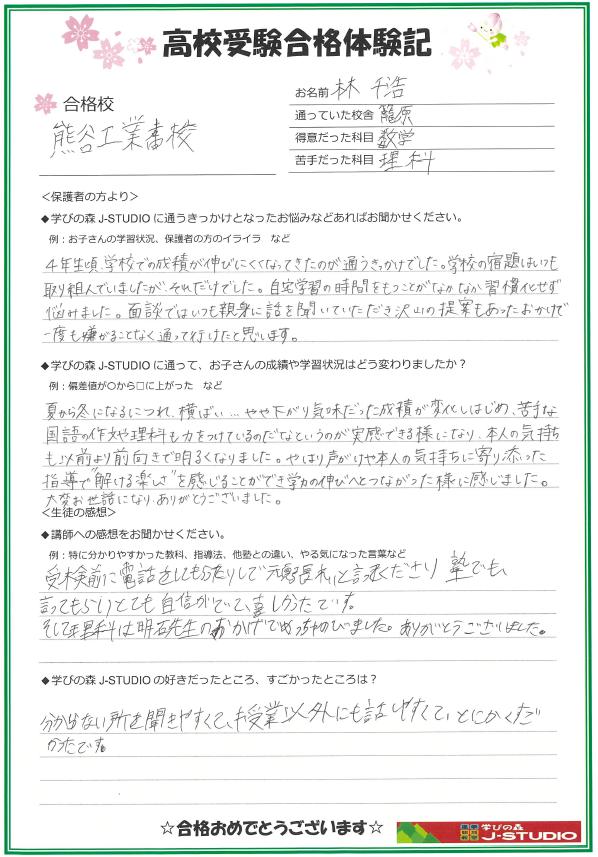 高校受験合格体験記
お名前 林 千浩
合格校
通っていた校舎 籠原
熊谷工業高校
得意だった科目 数学
苦手だった科目 理科
＜保護者の方より＞
◆学びの森 J-STUDIO に通うきっかけとなったお悩みなどあればお聞かせください。
例：お子さんの学習状況、保護者の方のイライラ など
4年生頃、学校での成績が伸びにくくなってきたのが通うきっかけでした。学校の宿題はいつも
取り組んでいましたが、それだけでした。自宅学習の時間をもつことがなかなか習慣化せず
悩みました。面談ではいつも親身に話を聞いていただき沢山の提案もあったおかげで
一度も嫌がることなく通って行けたと思います。
◆学びの森 J-STUDIO に通って、お子さんの成績や学習状況はどう変わりましたか？
例：偏差値が○から□に上がった など
夏から冬になるにつれ、横ばい…やや下がり気味だった成績が変化しはじめ、苦手な
国語の作文や理科も力をつけているのだなというのが実感できる様になり、本人の気持ち
も以前より前向きで明るくなりました。やはり声がけや本人の気持ちに寄り添った
指導で"解ける楽しさ"を感じることができ学力の伸びへとつながった様に感じました。
大変お世話になり、ありがとうございました。
＜生徒の感想＞
◆講師への感想をお聞かせください。
例：特に分かりやすかった教科、指導法、他塾との違い、やる気になった言葉など
受検前に電話をしてもらったりして 頑張れ と言ってくださり 塾でも、
言ってもらいとても自信がでて、喜しかったです。
そして理科は明石先生のおかげでめっちゃのびました。ありがとうございました。
◆学びの森 J-STUDIO の好きだったところ、すごかったところは？
分からない所を聞きやすくて、授業以外にも話しやすくて、とにかく
かったです。
☆合格おめでとうございます☆
学びの森
J-STUDIO